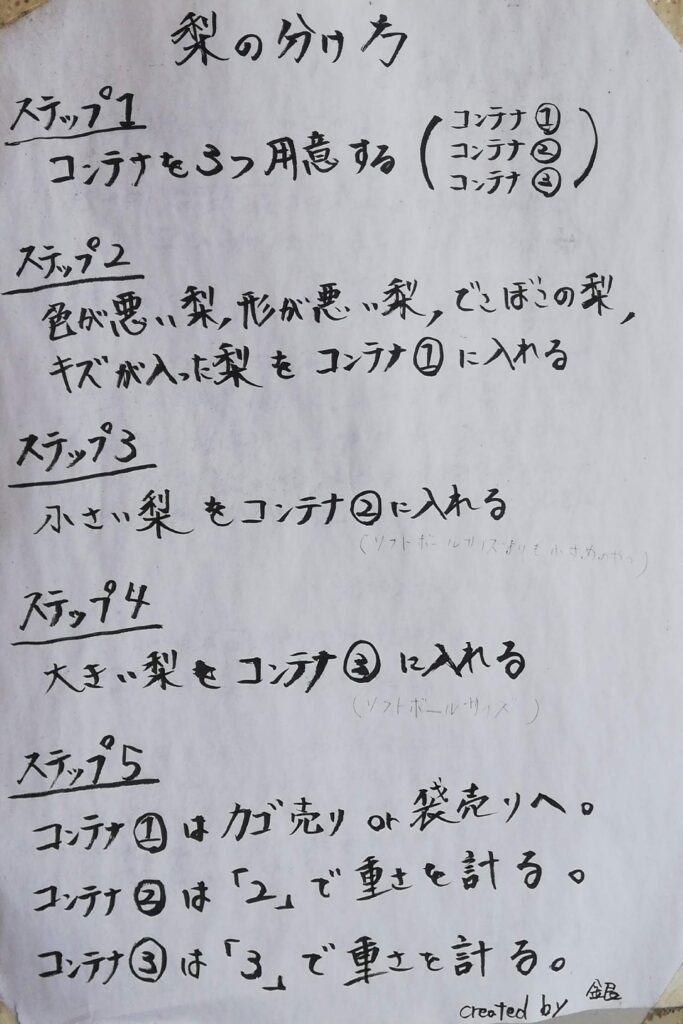 梨の分け方
ステップ1
コンテナを3つ用意する (コンテナ① コンテナ② コンテナ③)
ステップ2
色が悪い梨,形が悪い梨,でこぼこの梨,
キズが入った梨をコンテナ①に入れる
ステップ3
小さい梨をコンテナ②に入れる
(ソフトボールサイズよりも小さめのやつ)
ステップ4
大きい梨をコンテナ③に入れる
(ソフトボールサイズ)
ステップ5
コンテナ①はカゴ売りor袋売りへ。
コンテナ②は「2」で重さを計る。
コンテナ③は「3」で重さを計る。
created by